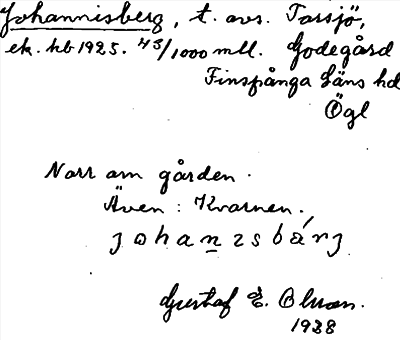 Johannisberg, t. avs. Tarsjö,
ek. kb 1925. 43/1000 mtl. Godegård
Finspånga Läns hd
Ögl
Norr om gården.
Även: Kvarnen.
johanɪsbárj
Gustaf E. Olsson.
1938